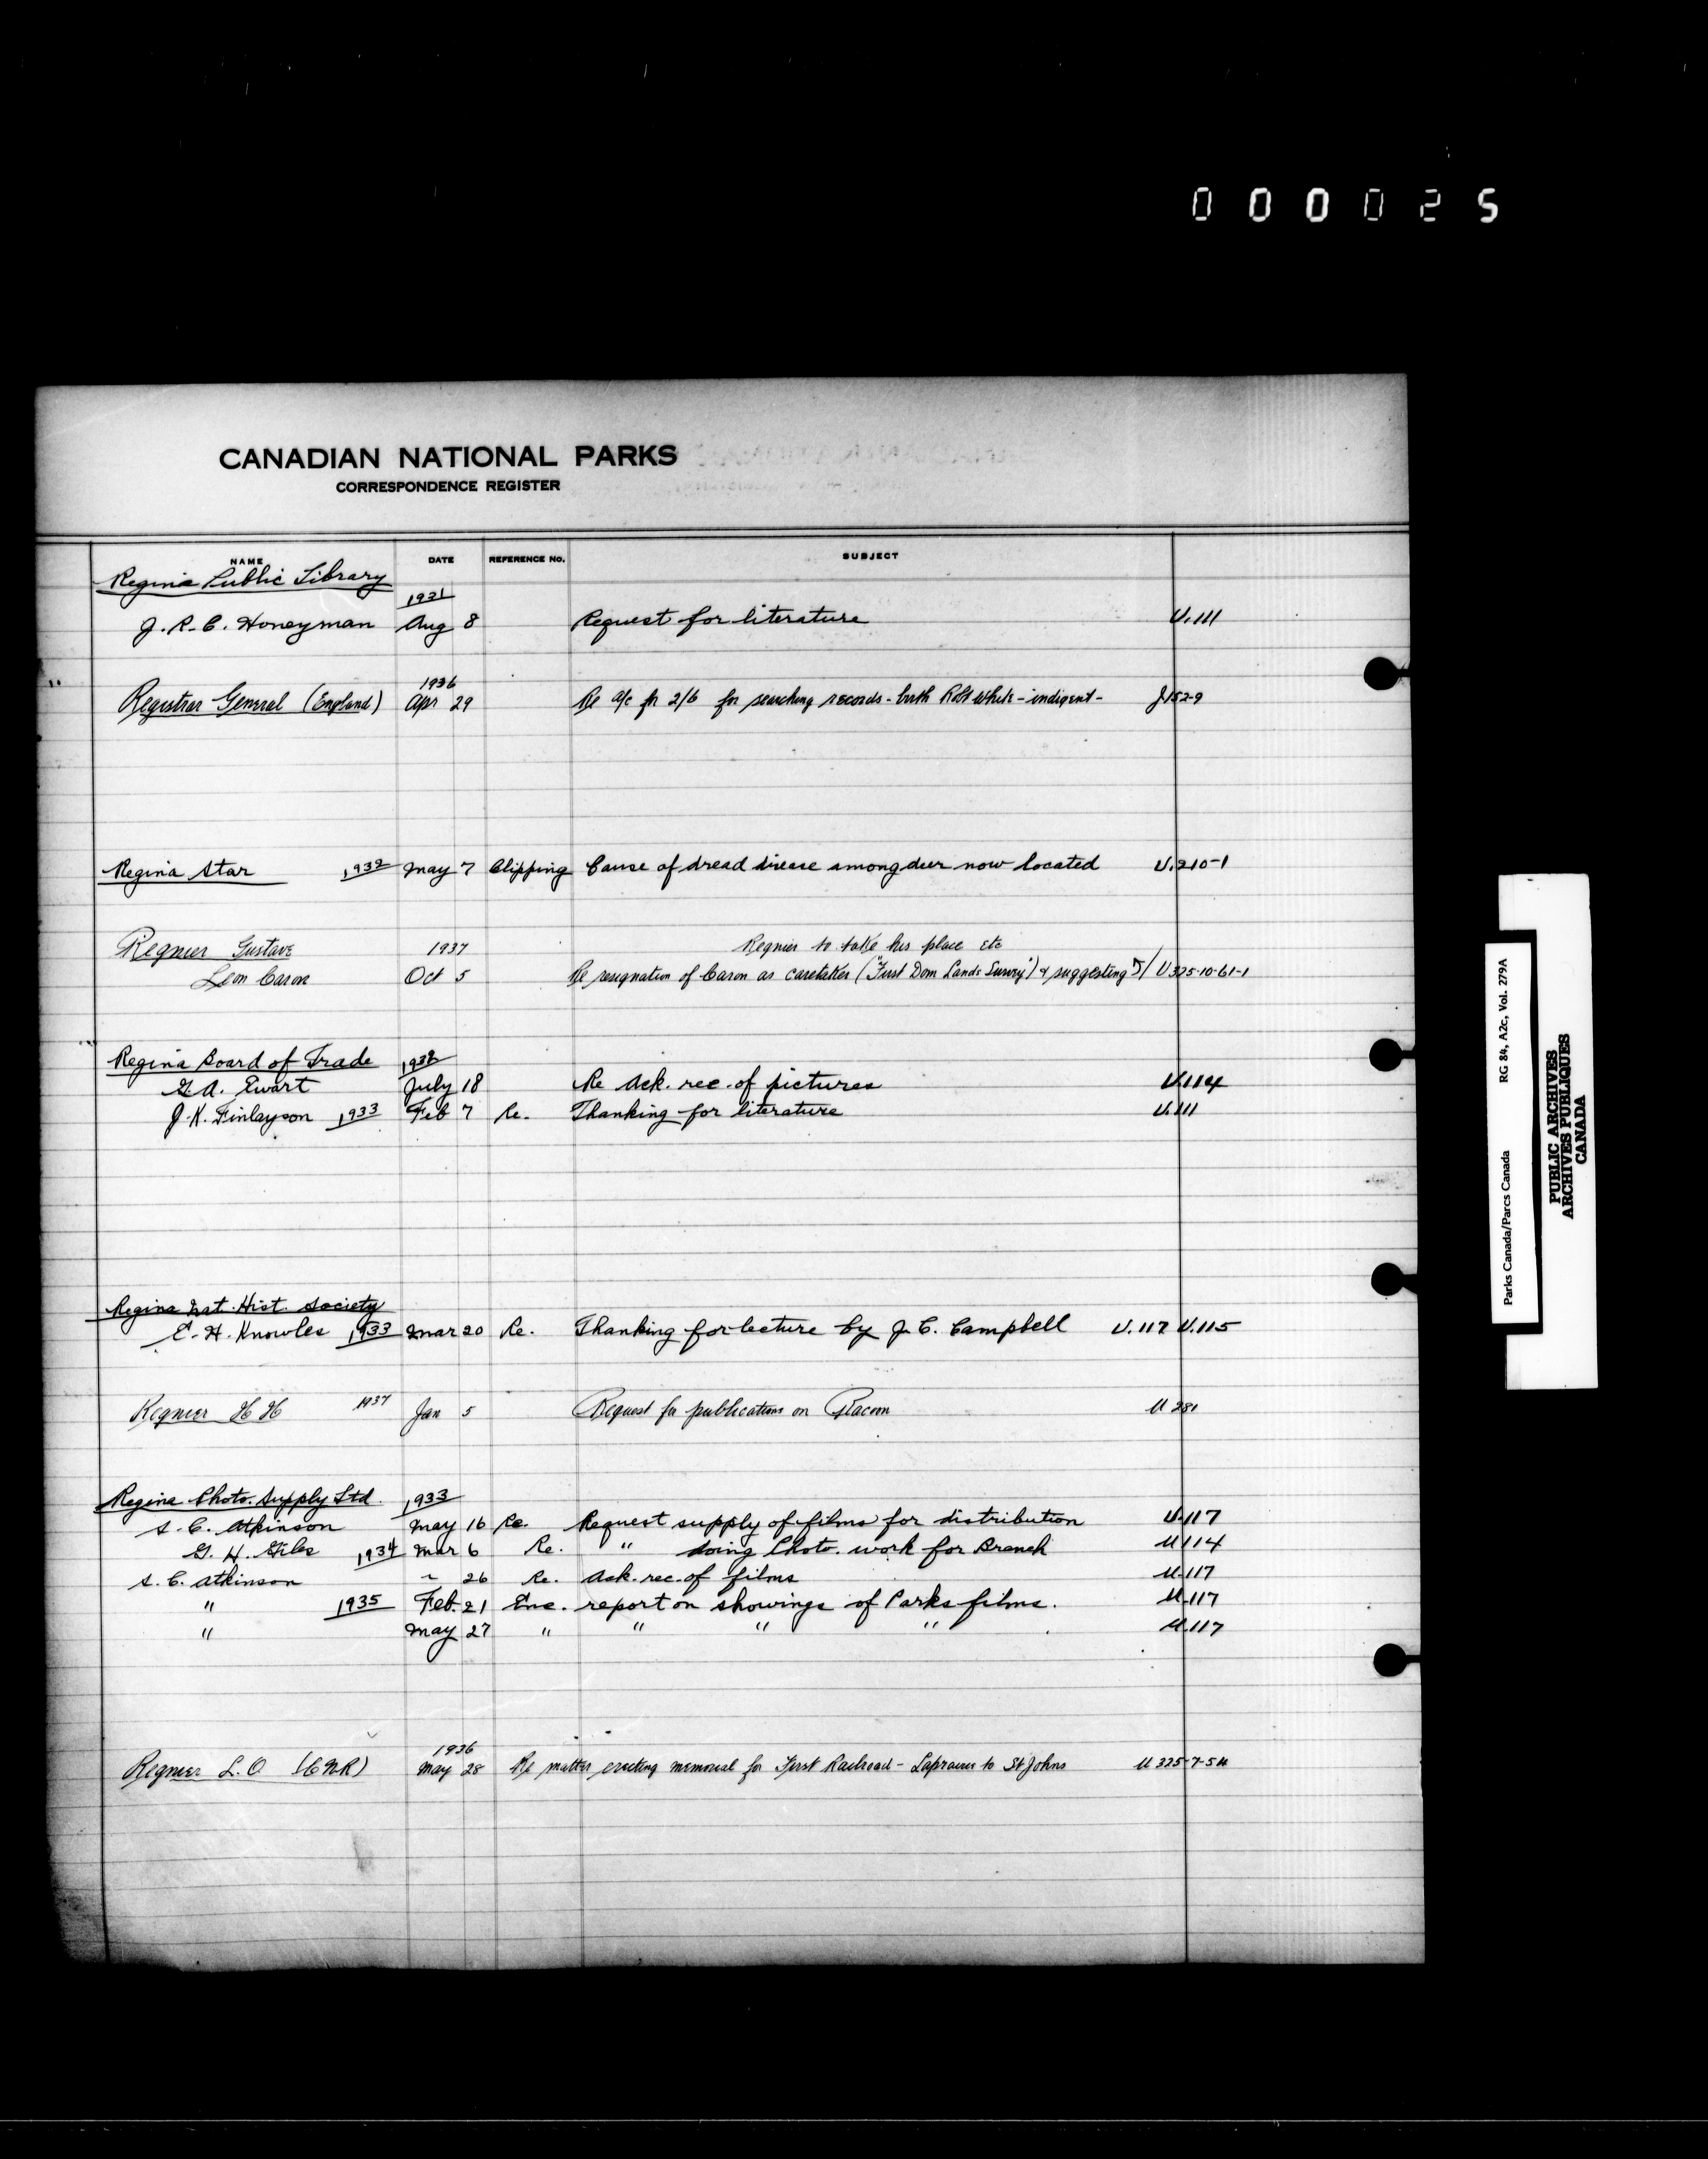 000025
CANADIAN NATIONAL PARKS
CORRESPONDENCE REGISTER
NAME DATE REFERENCE NO. SUBJECT
Regina Public Library
1931
J. R. C. Honeyman Aug 8 Request for literature U.111
1936
Registrar General (England) Apr 29 Re a/c for 2/6 for searching records - birth Robt White - indigent - J152-9
Regina Star 1932 May 7 Clipping Cause of dread disease among deer now located U.210-1
Regnier Gustave 1937 Regnier to take his place etc
Leon Caron Oct 5 Re resignation of Caron as caretaker ("First Dom Lands Survey") & suggesting / U325-10-61-1
Regina Board of Trade 1932
G. A. Ewart July 18 Re Ack. rec. of pictures U.114
J. K. Finlayson 1933 Feb 7 Re. Thanking for literature U.111
Regina Nat. Hist. Society
C. H. Knowles 1933 Mar 20 Re. Thanking for lecture by J. C. Campbell U.117 U.115
Regnier H H 1937 Jan 5 Request for publications on Racoon U 281
Regina Photo. Supply Ltd. 1933
S. C. Atkinson May 16 Re. Request supply of films for distribution U.117
G. H. Giles 1934 Mar 6 Re. " doing Photo. work for Branch U114
S. C. Atkinson " 26 Re. Ack. rec. of films U.117
" 1935 Feb. 21 Enc. report on showings of Parks films. U.117
" May 27 " " " " U.117
1936
Regnier L. O (CNR) May 28 Re matter erecting memorial for First Railroad - Laprairie to St Johns U 325-7-5
Parks Canada/Parcs Canada RG 84, A2c, Vol. 279A
PUBLIC ARCHIVES
ARCHIVES PUBLIQUES
CANADA